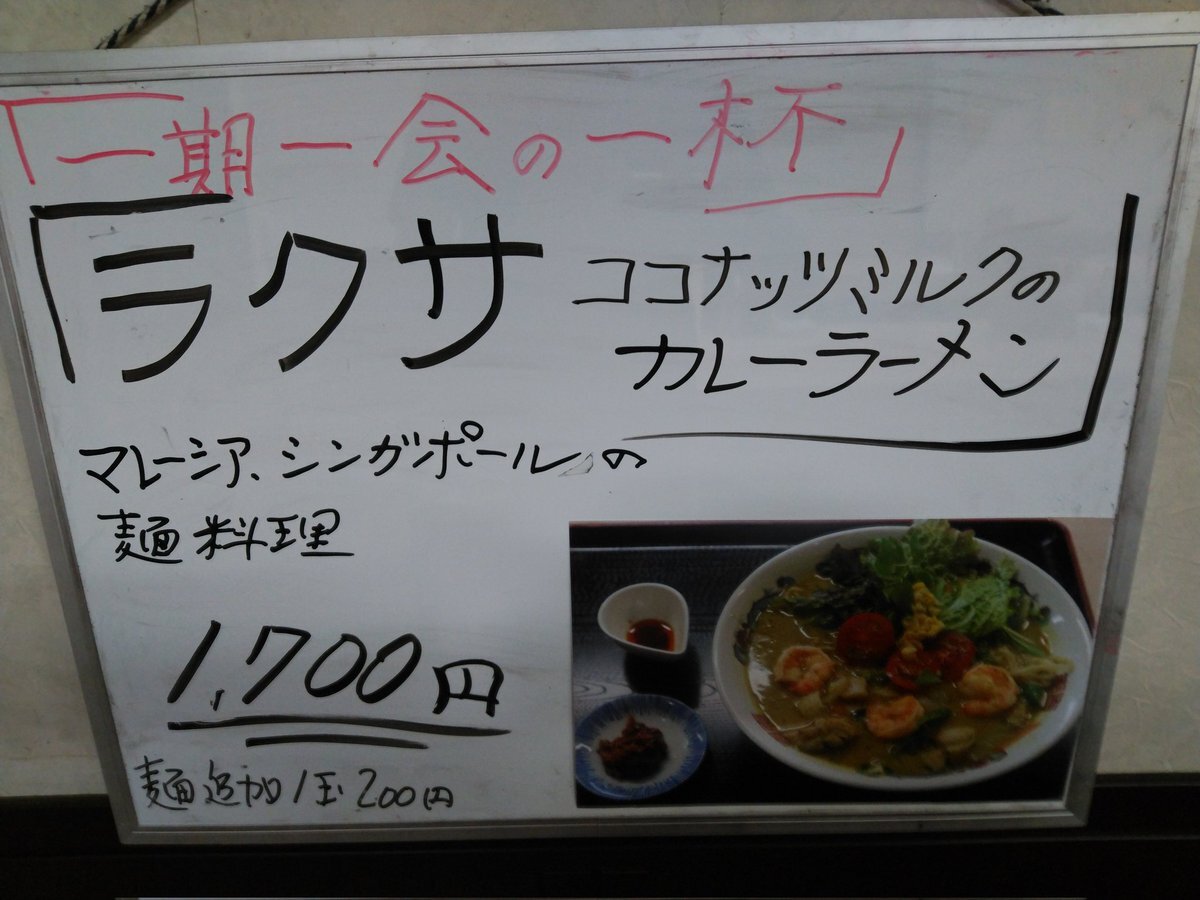 「一期一会の一杯」
「ラクサ ココナッツミルクの
カレーラーメン」
マレーシア、シンガポールの
麺料理
1,700円
麺追加1玉200円